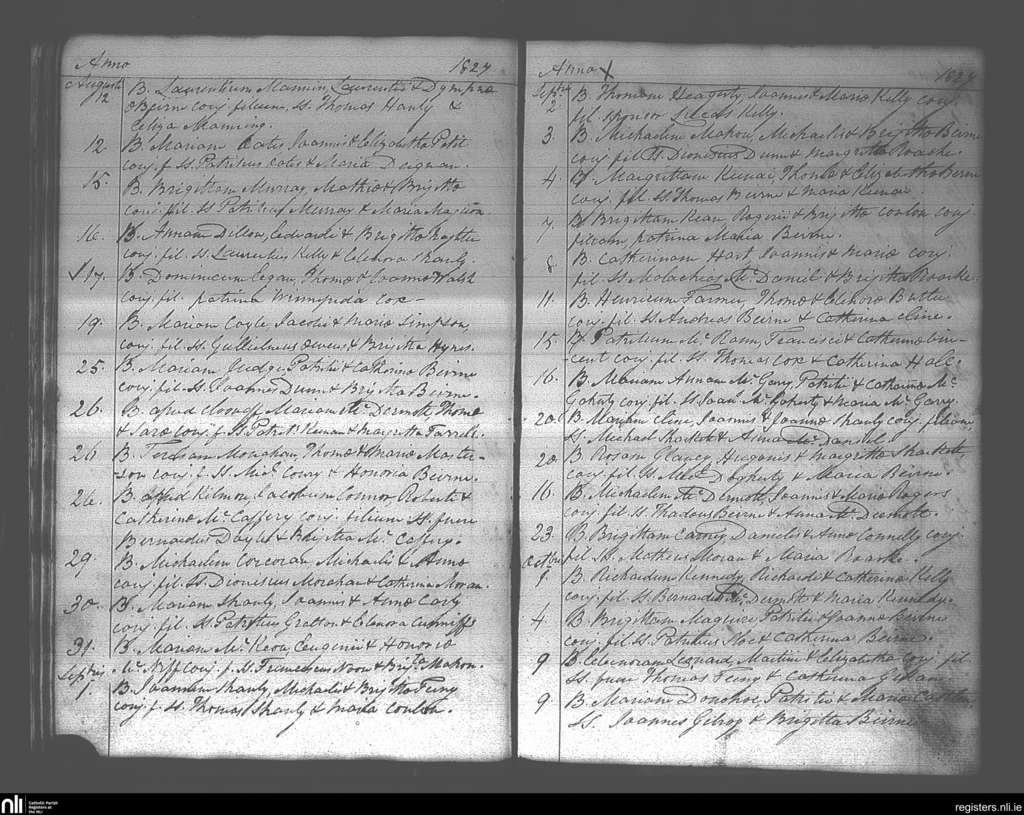 Anno 1827
August
12 B. Laurentium Mannin, Laurentii & Dympnæ
Beirne conj. filium, SS. Thomas Hanly &
Eliza Manning.
12 B. Mariam Oates Joannis & Elizabetha Petit
conj. f. SS. Patritius Oates & Maria Deignan.
15. B. Brigittam Murray, Mathiæ & Brigitta
conj. fil. SS. Patritius Murray & Maria
16. B. Annam Dillon, Edvardi & Brigitta
conj. fil. SS. Laurentius Kelly & Elenora Shanly.
17. B. Dominicum Egan, Thomæ & Joanna Walsh
conj. fil. patrina Winnifrida Cox –
19. B. Mariam Coyle, Jacobi & Maria Simpson,
conj. fil. SS. Gullielmus Owens & Brigitta Hynes.
25. B. Mariam Judge, Patritii & Catherina Beirne
conj. fil. SS. Joannes Dunn & Brigitta Beirne.
26. B. apud Mariam Mc Dermott Thomæ
& Sara conj. f. SS. Patrit's Keenan & Margritta Farrell.
26 B. Monaghan, Thomæ & Maria Master-
son conj. f. SS. Mic. Lowry & Honoria Beirne.
26. B. apud Kilmore, Jacobum Connor, Roberti &
Catherina Mc Caffery conj. filium SS. fuere
Bernardus Doyle & Brigitta Mc Caffery.
29. B. Michaelem Corcoran Michaelis & Anna
conj. fil. SS. Dionisius Monahan & Catherina Moran.
30. B. Mariam Shanly, Joannis & Anna Carty
conj. fil. SS. Patritius Gratton & Elenora Cunniffe
31. B. Mariam Mc Keon, Eugenii & Honoria
conj. f. SS. Franciscus Noon & Brigt. Mahon.
Septbris
1. B. Joannem Shanly, Michaelis & Brigitta Feeny
conj. f. SS. Thomas Shanly & Maria Conlon.
Anno 1827
Septbr
2. B. Thomam Heagerty, Joannis & Maria Kelly conj.
fil. sponsor Kelly.
3 B. Michaelem Mahon, Michaelis & Brigitta Beirne
conj. fil. SS. Dionisius Dunn & Margritta Roarke.
4. B. Margrittam Keenan, Thomæ & Elizabetha Beirne
conj. fil. SS. Thomas Beirne & Maria Keenan
7 B. Brigittam Kean Rogerii & Brigitta Conlon conj.
filiam, patrina Maria Beirne.
8 B. Catherinam Hart, Joannis & Maria conj.
fil. SS. Malachias Mc Daniel & Brigitta Roarke.
11. B. Henricum Farmer, Thomæ & Elenora Butler
conj. fil. SS. Andreas Beirne & Catherina Cline.
15. B. Patritium Mc Francisci & Catherina Vin-
cent conj. fil. SS. Thomas Cox & Catherina Hall.
16. B. Mariam Annam Mc Garry, Patritii & Catharina Mc
Goherty conj. fil. SS. Joans Mc Goherty & Maria Mc Garry.
20. B. Mariam Cline, Joannis & Joanna Shanly conj. filiam
SS. Michael & Anna Mc Daniel.
20. B. Rosam Glancy, Hugonis & Margritta
conj. fil. SS. Dogherty & Maria Beirne.
16. B. Michaelem Mc Dermott, Joannis & Maria Rogers
conj. fil. SS. Thadeus Beirne & Anna Mc Dermott.
23. B. Brigittam Danielis & Anna Connelly conj.
fil. SS. Matheus Moran & Maria Roarke.
Octbris
1. B. Richardum Kennedy, Richardi & Catherina Kelly
conj. fil. SS. Bernardus Mc Dermott & Maria Kennedy.
4. B. Brigittam Maguire Patritii & Joanna Beirne
conj. fil. SS. Patritius & Catherina Beirne.
9 B. Elenoram Leonard, Martini & Elizabetha conj. fil.
SS. fuere Thomas Feeny & Catherina
9. B. Mariam Donohoe, Patritii & Maria
SS. Joannes Gilroy & Brigitta Beirne
nli Catholic Parish
Registers at
the NLI
registers.nli.ie